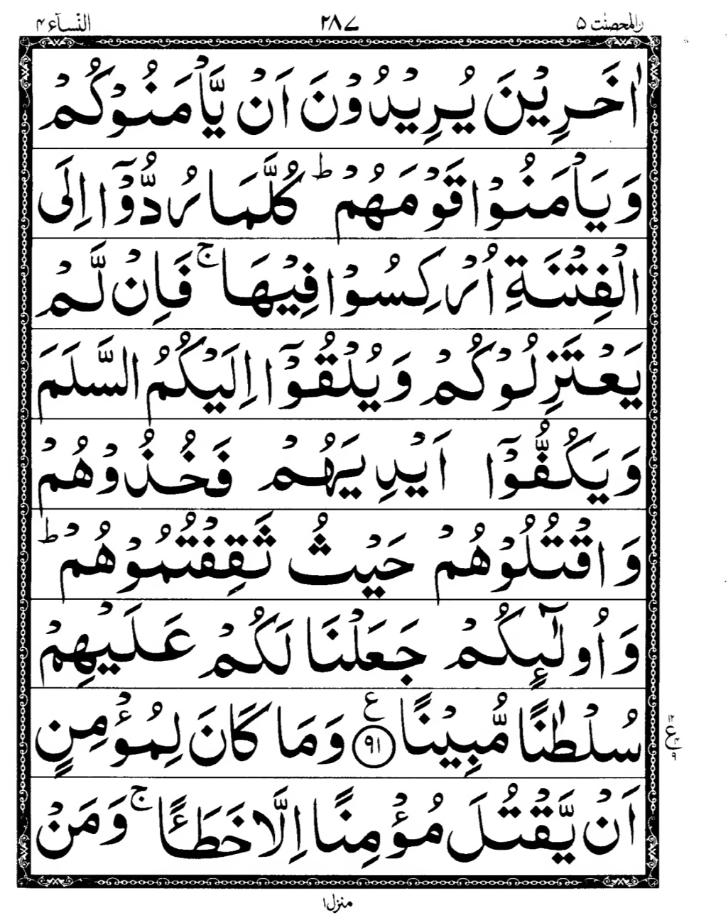 والمحصنت ۵ ۲۸۷ النسآء ۴
اٰخَرِیْنَ یُرِیْدُوْنَ اَنْ یَّاْمَنُوْكُمْ
وَیَاْمَنُوْا قَوْمَهُمْ ؕ كُلَّمَا رُدُّوْۤا اِلَى
الْفِتْنَةِ اُرْكِسُوْا فِیْهَا ۚ فَاِنْ لَّمْ
یَعْتَزِلُوْكُمْ وَیُلْقُوْۤا اِلَیْكُمُ السَّلَمَ
وَیَكُفُّوْۤا اَیْدِیَهُمْ فَخُذُوْهُمْ
وَاقْتُلُوْهُمْ حَیْثُ ثَقِفْتُمُوْهُمْ ؕ
وَاُولٰٓىِٕكُمْ جَعَلْنَا لَكُمْ عَلَیْهِمْ
سُلْطٰنًا مُّبِیْنًا ﴿۹۱﴾ ع وَمَا كَانَ لِمُؤْمِنٍ
اَنْ یَّقْتُلَ مُؤْمِنًا اِلَّا خَطَــٴًـا ۚ وَمَنْ
ع ۹
منزل ۱